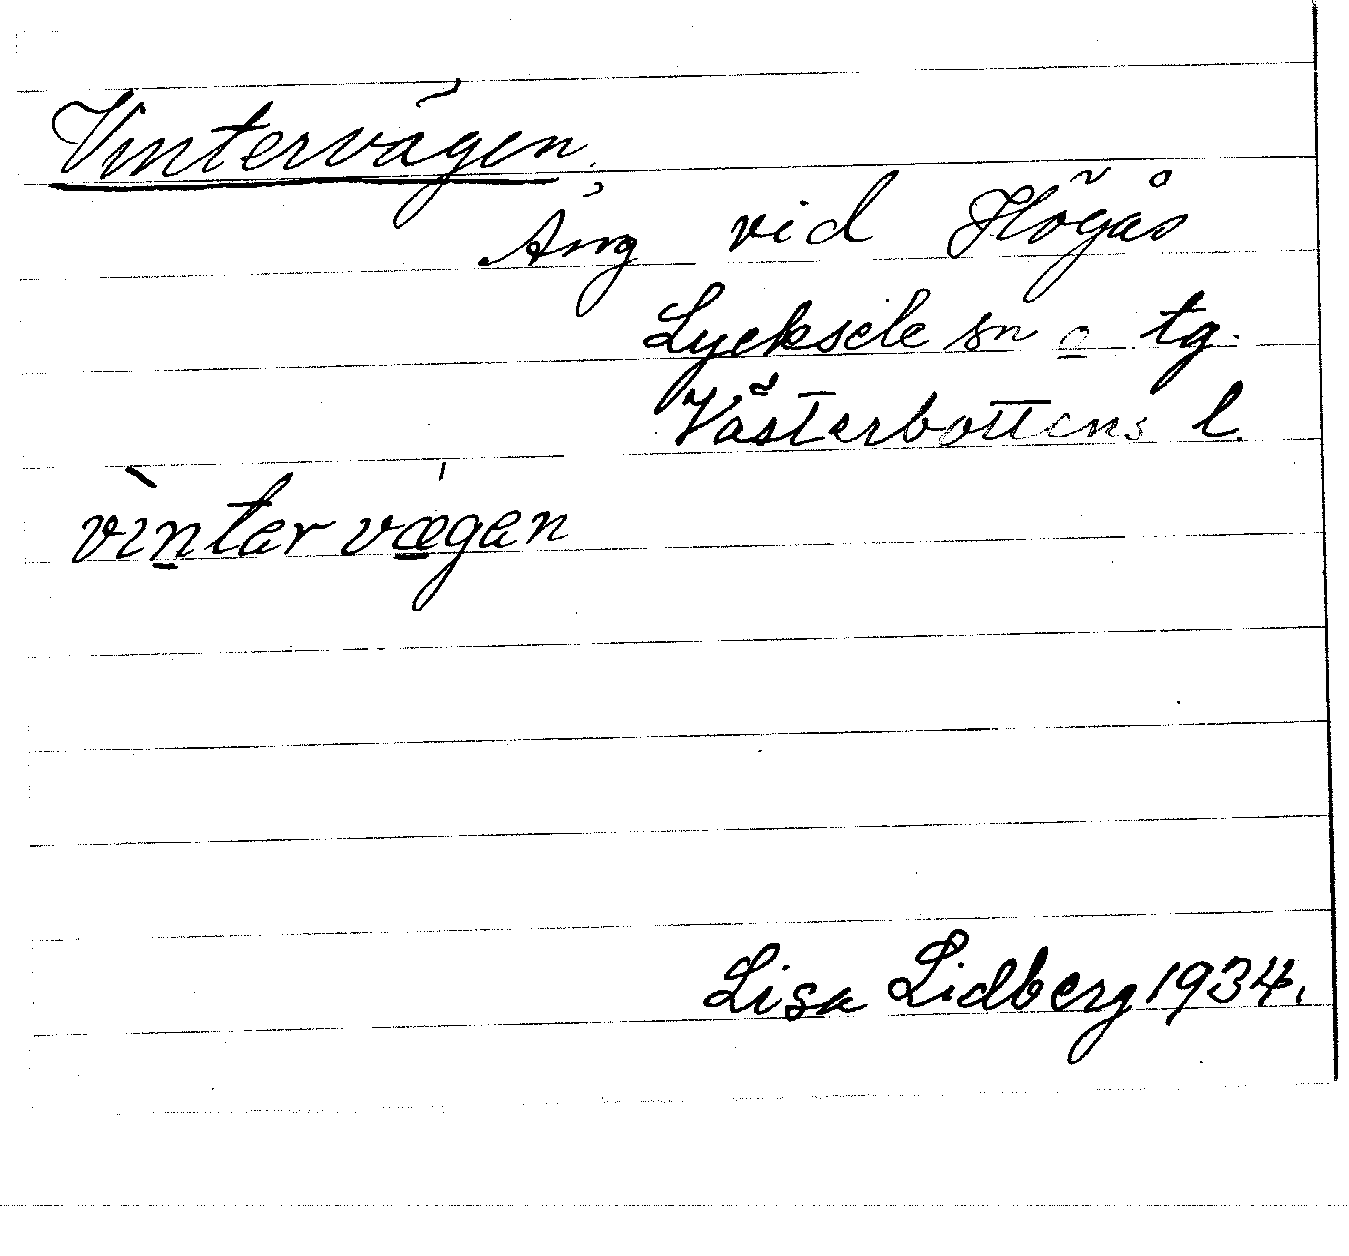 Vintervägen.
Äng vid Högås
Lycksele sn o tg.
Västerbottens l.
vìntar vǽgan
Lisa Lidberg 1934.